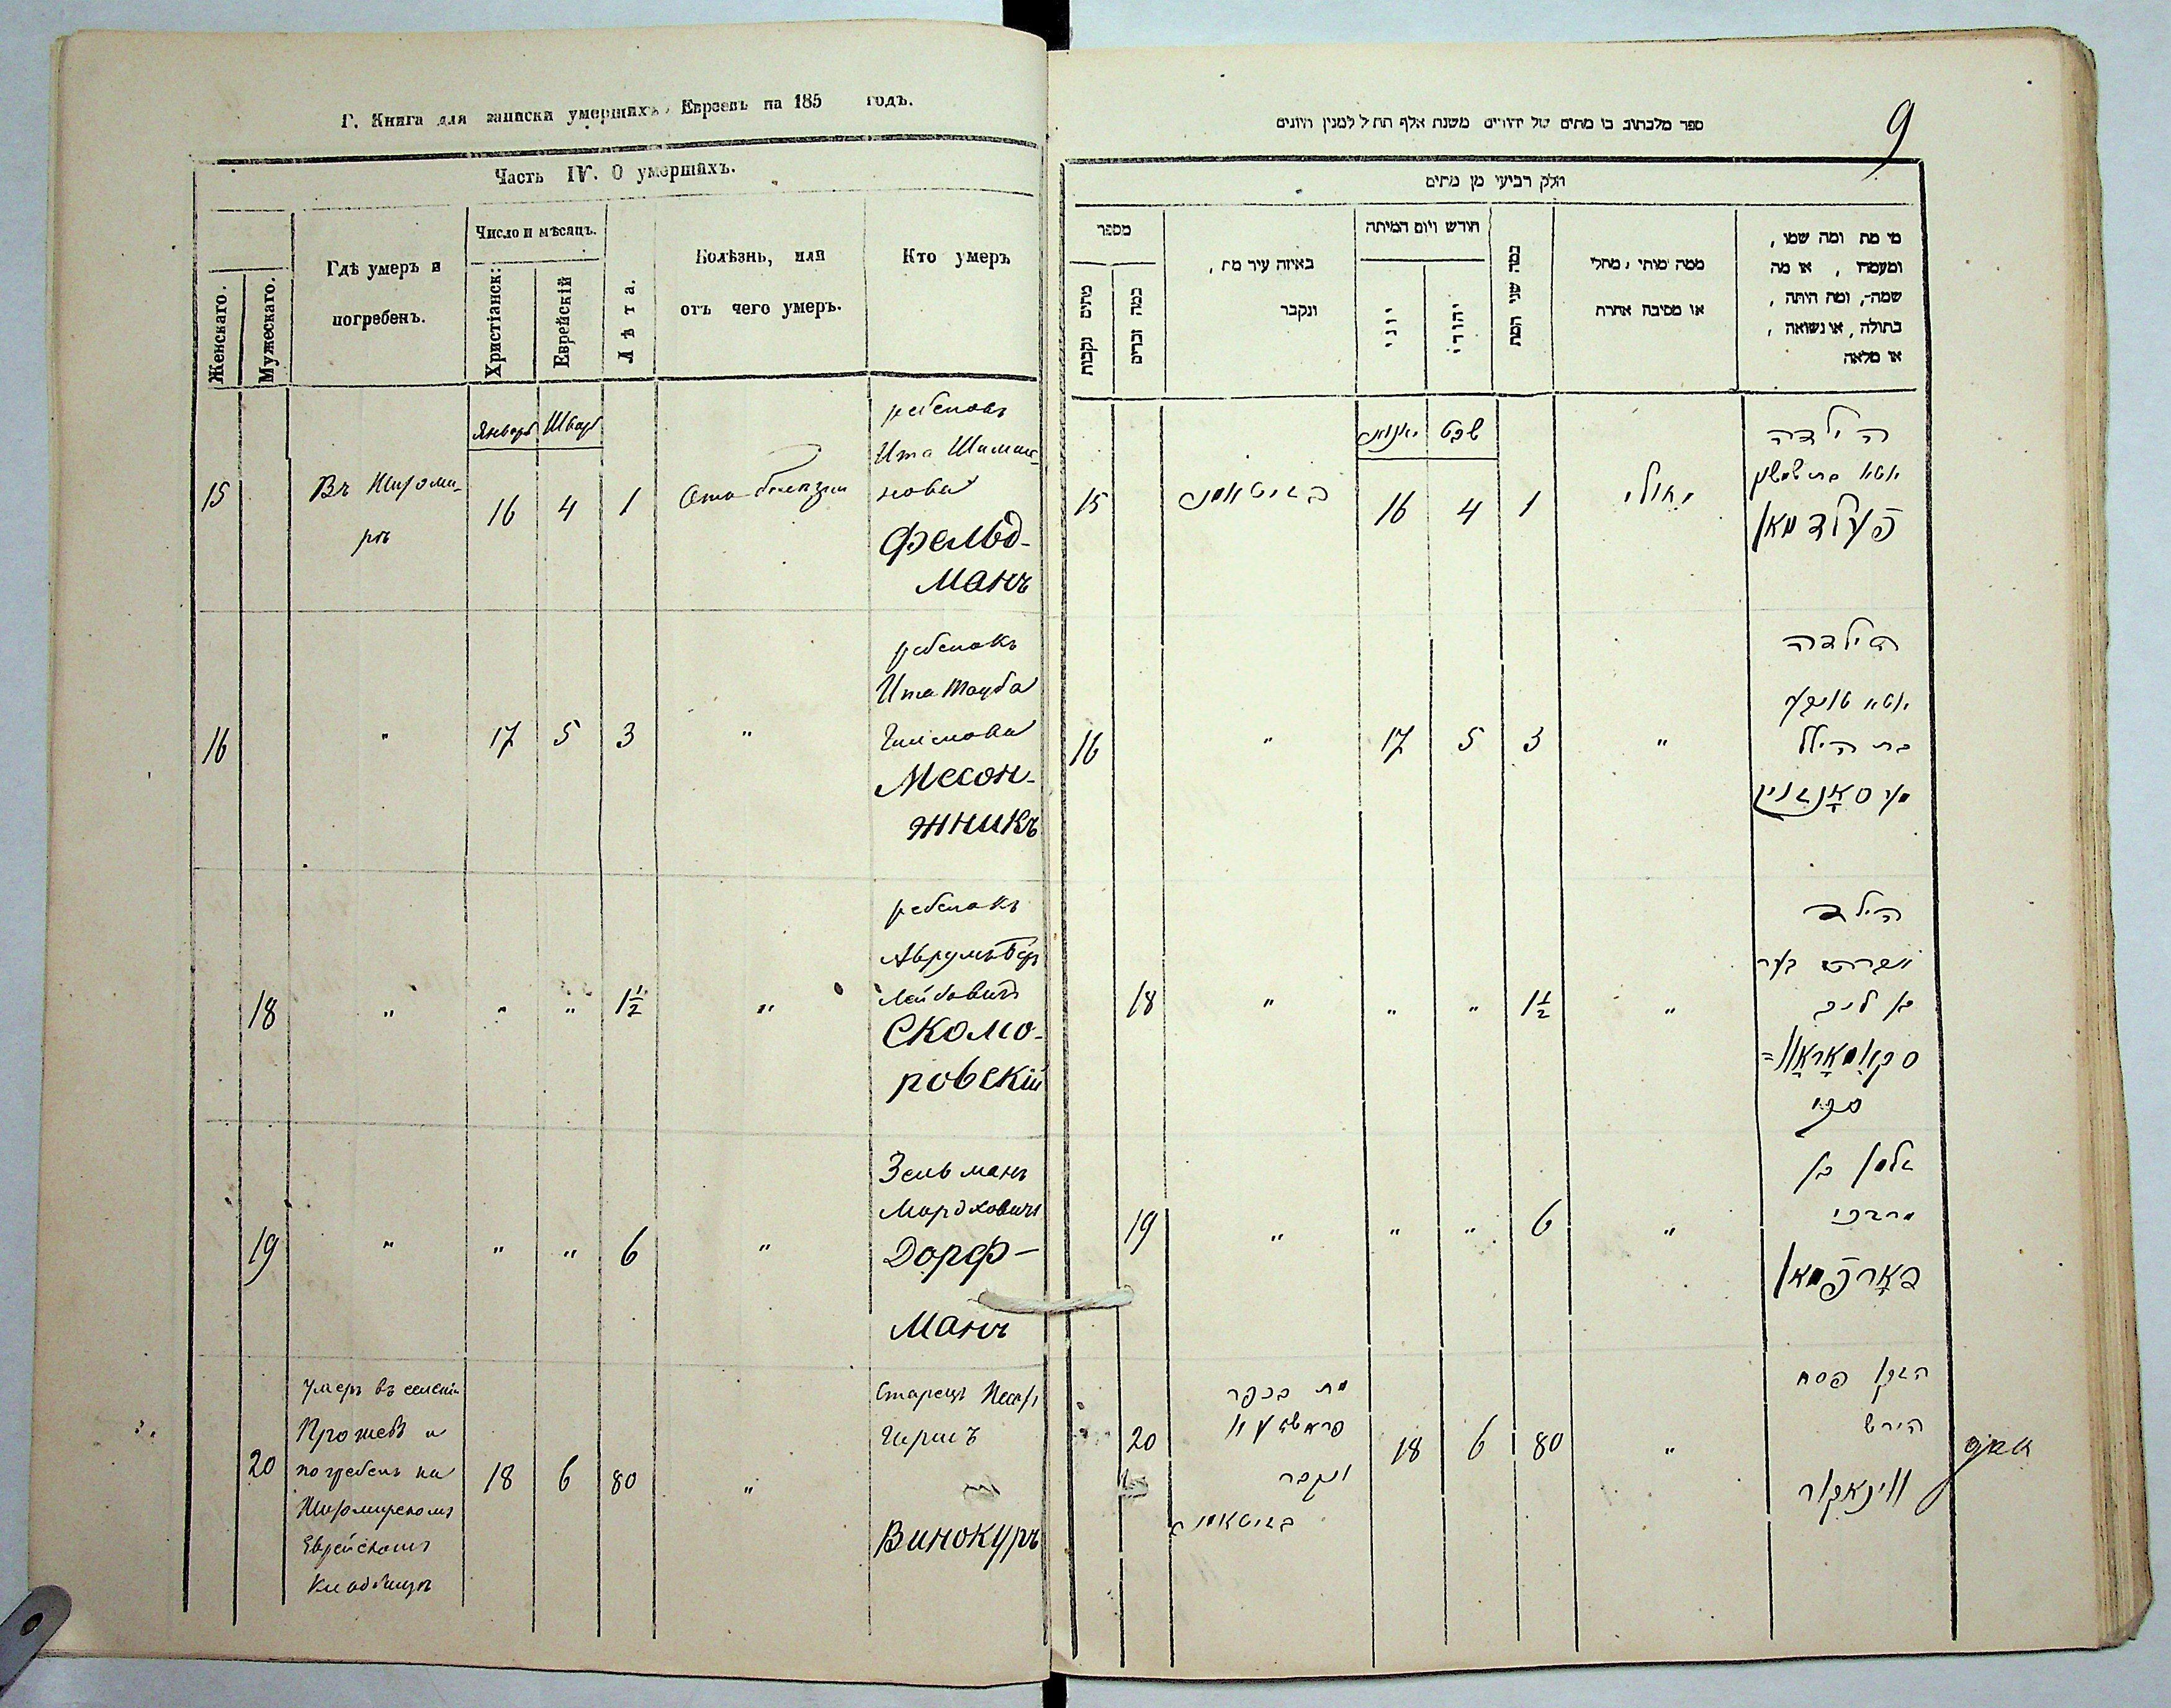 Г. Книга для записки умершихъ Евреевъ на 185 годъ.
Часть IV. О умершихъ.
Женскаго.
Мужескаго.
Гдѣ умеръ и
погребенъ.
Число и мѣсяцъ.
Христіанск:
Еврейскій
Лѣта.
Болѣзнь, или
отъ чего умеръ.
Кто умеръ
Январь Шватъ
15
Въ Житоми-
рѣ
16 4 1
Отъ болезни
ребенокъ
Ита Шимшо-
нова
Фельд-
манъ
16
" 17 5 3 "
ребенокъ
Ита Тауба
Гилелова
Месон-
жникъ
18
" " " 1½ "
ребенокъ
Аврумъ Беръ
Лейбовичъ
Скомо-
ровскій
19
" " " 6 "
Зельманъ
Мордховичъ
Дорф-
манъ
20
умеръ въ селеніи
и
погребенъ на
Житомирскомъ
Еврейскомъ
Кладбищѣ
18 6 80 "
Старецъ
Гиршъ
Винокуръ
9
חלק רביעי מן מתים
מספר
מתים נקבות
כמה זכרים
באיזה עיר מת,
ונקבר
חודש ויום המיתה
יווני
יהודי
כמה שני המת
ממה מותו, מחלי
או מסיבה אחרת
מי מת ומה שמו,
ומעמדו, או מה
שמה, ומה היתה,
בתולה, או נשואה,
או אלמנה
יאנואר שבט
15
בזיטאמיר
16 4 1
חולי
הילדה
איטא בת שמשון
פעלדמאן
16
" 17 5 3 "
הילדה
איטא טויבע
בת הילל
מעסאנזניק
18
" " " 1½ "
הילד
אברהם בער
בן ליב
סקאמאראוו=
סקי
19
" " " 6 "
זלמן בן
מרדכי
דארפמאן
20
מת בכפר
ונקבר
בזיטאמיר
18 6 80 "
הזקן פסח
הירש
ווינאקור